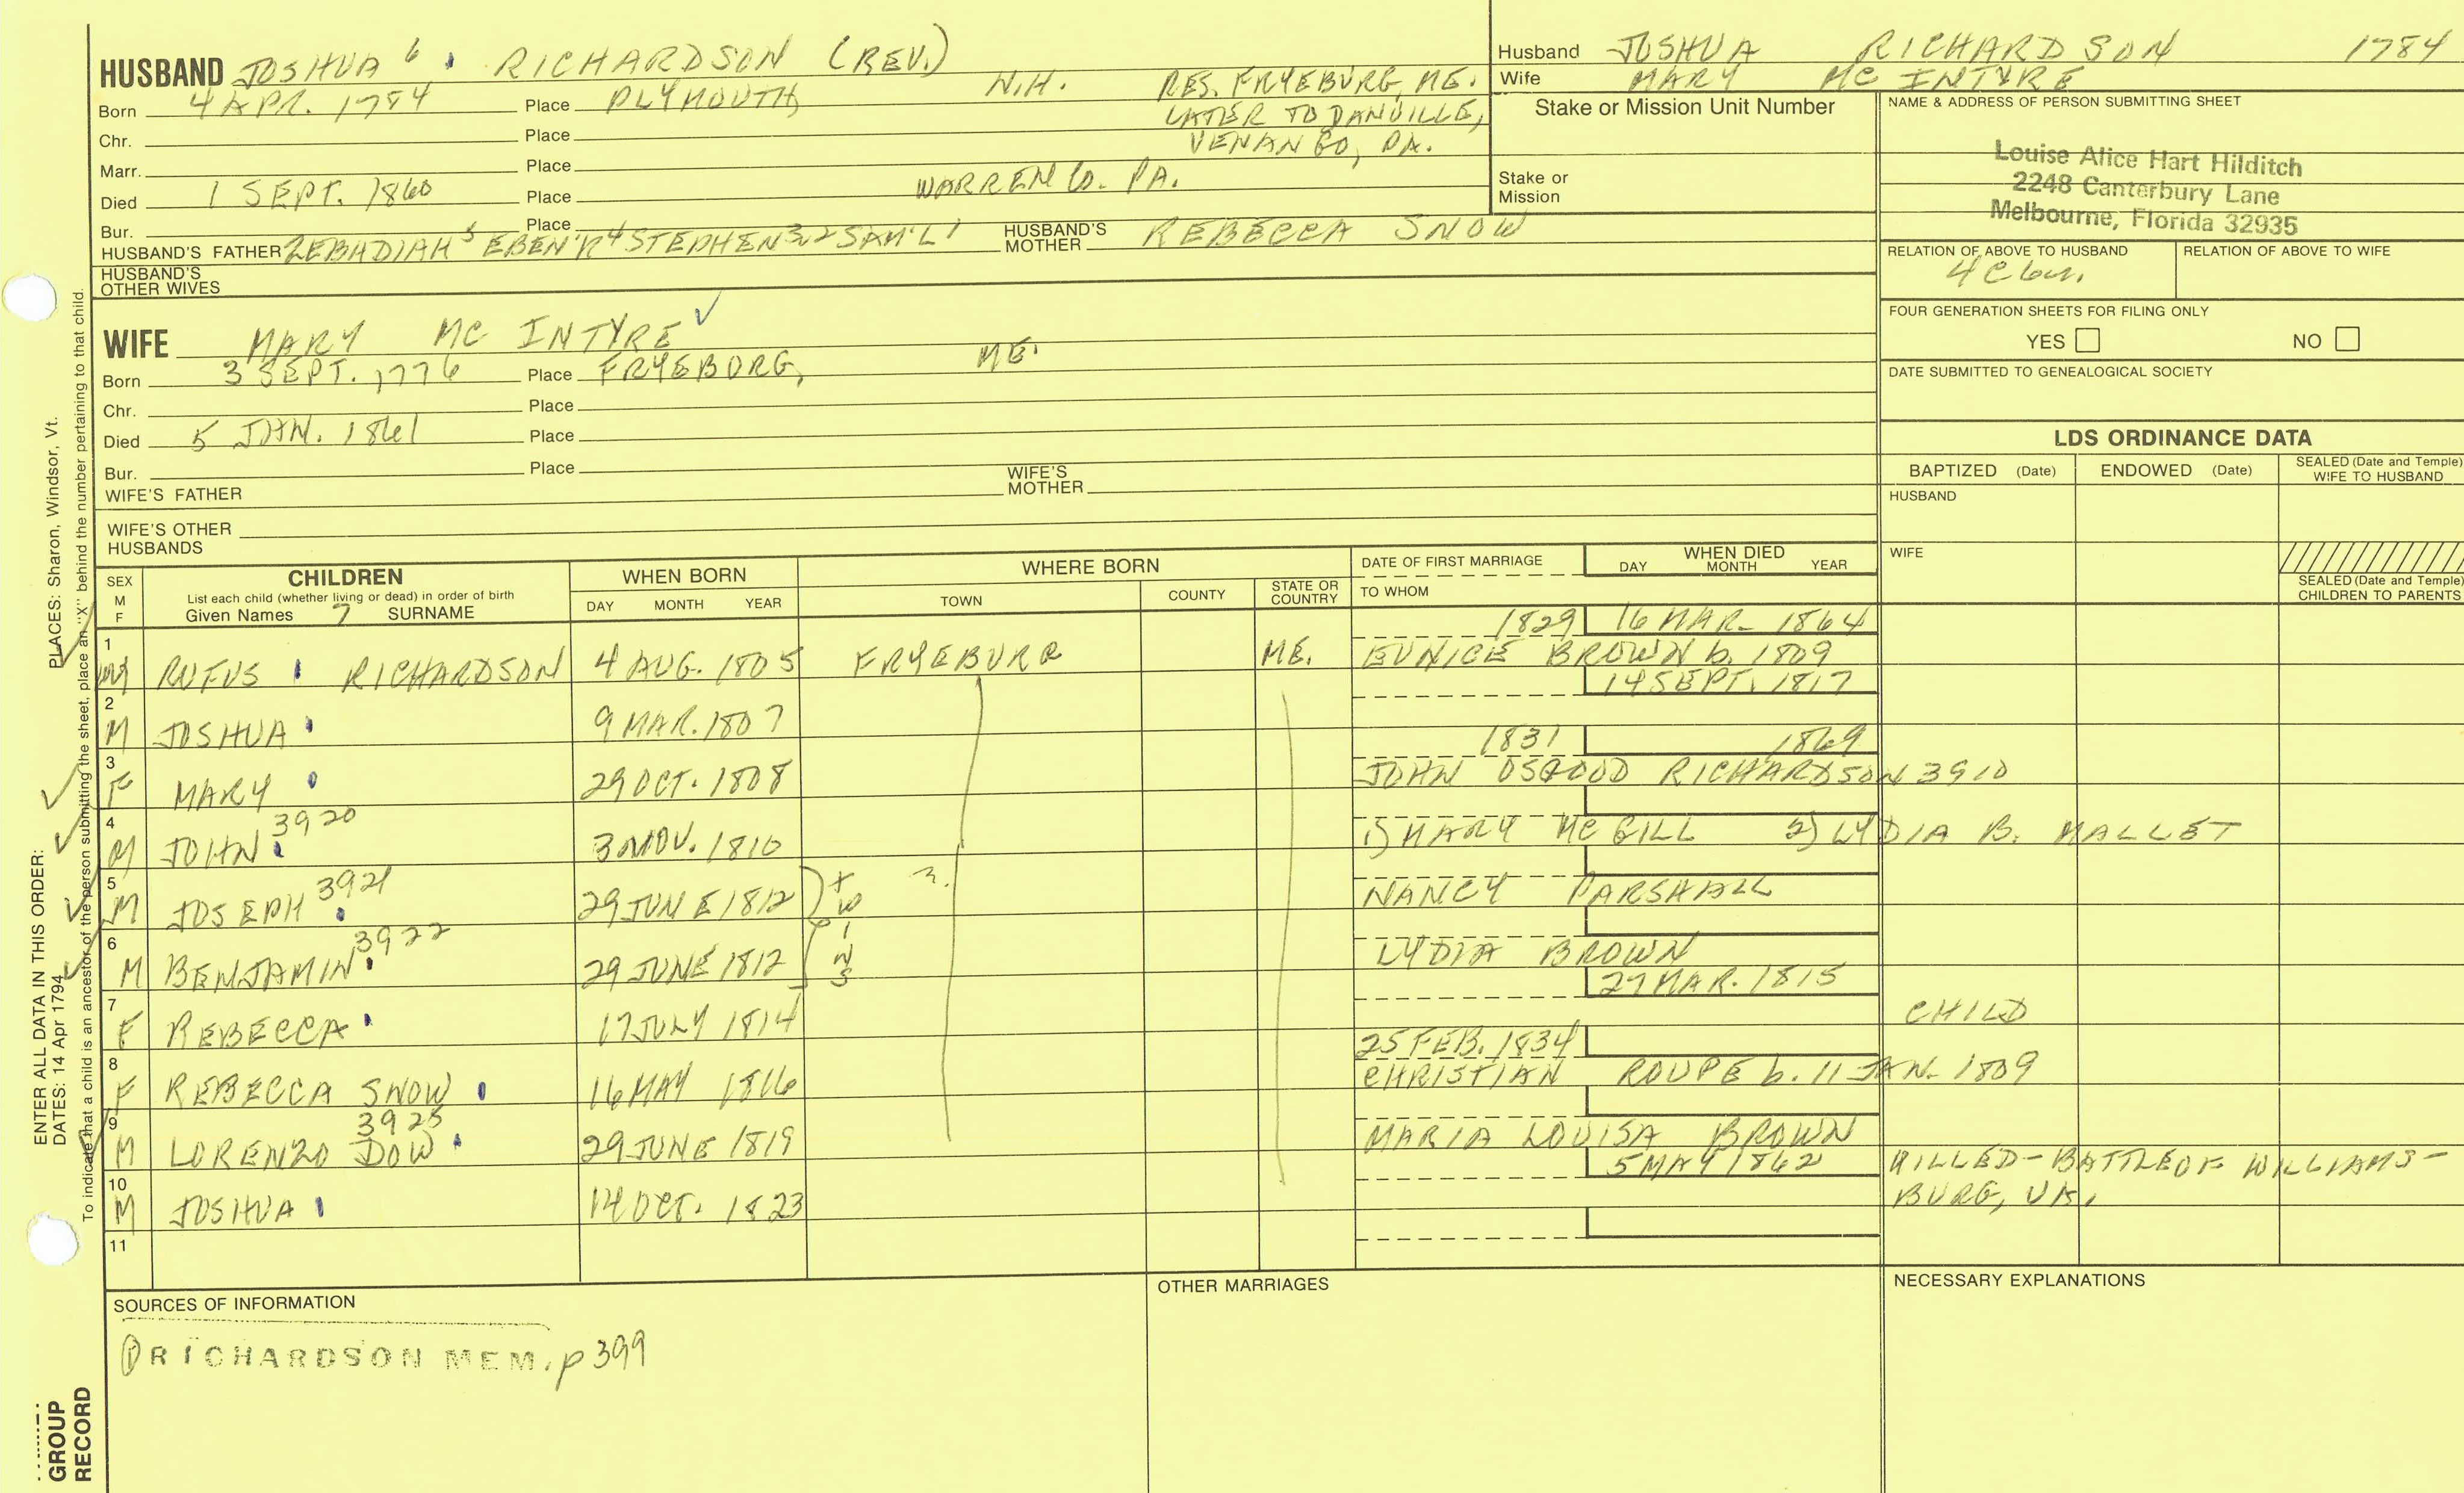 HUSBAND JOSHUA 6 RICHARDSON (REV.)
Born 4 APR. 1784 Place PLYMOUTH N.H. RES. FRYEBURG, ME.
LATER TO DANVILLE,
VENANGO, PA.
Chr. Place
Marr. Place
Died 1 SEPT. 1860 Place WARREN CO. PA.
Bur. Place
HUSBAND'S FATHER ZEBADIAH 5 EBEN'R 4 STEPHEN 3,2 SAM'L 1 HUSBAND'S MOTHER REBECCA SNOW
HUSBAND'S OTHER WIVES
WIFE MARY MC INTYRE
Born 3 SEPT. 1776 Place FRYEBORG, ME.
Chr. Place
Died 5 JAN. 1861 Place
Bur. Place
WIFE'S FATHER WIFE'S MOTHER
WIFE'S OTHER HUSBANDS
Husband JOSHUA RICHARDSON 1784
Wife MARY MC INTYRE
Stake or Mission Unit Number
Stake or Mission
NAME & ADDRESS OF PERSON SUBMITTING SHEET
Louise Alice Hart Hilditch
2248 Canterbury Lane
Melbourne, Florida 32935
RELATION OF ABOVE TO HUSBAND RELATION OF ABOVE TO WIFE
FOUR GENERATION SHEETS FOR FILING ONLY
YES NO
DATE SUBMITTED TO GENEALOGICAL SOCIETY
LDS ORDINANCE DATA
BAPTIZED (Date) ENDOWED (Date) SEALED (Date and Temple) WIFE TO HUSBAND
HUSBAND
WIFE
SEALED (Date and Temple) CHILDREN TO PARENTS
SEX M F
CHILDREN
List each child (whether living or dead) in order of birth
Given Names 7 SURNAME
WHEN BORN
DAY MONTH YEAR
WHERE BORN
TOWN COUNTY STATE OR COUNTRY
DATE OF FIRST MARRIAGE
TO WHOM
WHEN DIED
DAY MONTH YEAR
1829 16 MAR. 1864
1 M RUFUS RICHARDSON 4 AUG. 1805 FRYEBURG ME. EUNICE BROWN b. 1809
14 SEPT. 1817
2 M JOSHUA 9 MAR. 1807
1831 1869
3 F MARY 29 OCT. 1808 JOHN OSGOOD RICHARDSON 3910
4 M JOHN 3920 3 NOV. 1810 1) MARY MC GILL 2) LYDIA B. MALLET
5 M JOSEPH 3921 29 JUNE 1812 NANCY PARSHALL
twins
6 M BENJAMIN 3922 29 JUNE 1812 LYDIA BROWN
27 MAR. 1815
7 F REBECCA 17 JULY 1814 CHILD
25 FEB. 1834
8 F REBECCA SNOW 16 MAY 1816 CHRISTIAN ROUPE b. 11 JAN. 1809
9 M LORENZO DOW 3925 29 JUNE 1819 MARIA LOUISA BROWN
5 MAY 1862 KILLED-BATTLE OF WILLIAMS-
10 M JOSHUA 14 OCT. 1823 BURG, VA.
11
SOURCES OF INFORMATION
RICHARDSON MEM. p 399
OTHER MARRIAGES
NECESSARY EXPLANATIONS
ENTER ALL DATA IN THIS ORDER:
DATES: 14 Apr 1794 PLACES: Sharon, Windsor, Vt.
To indicate that a child is an ancestor of the person submitting the sheet, place an "X" behind the number pertaining to that child.
GROUP
RECORD